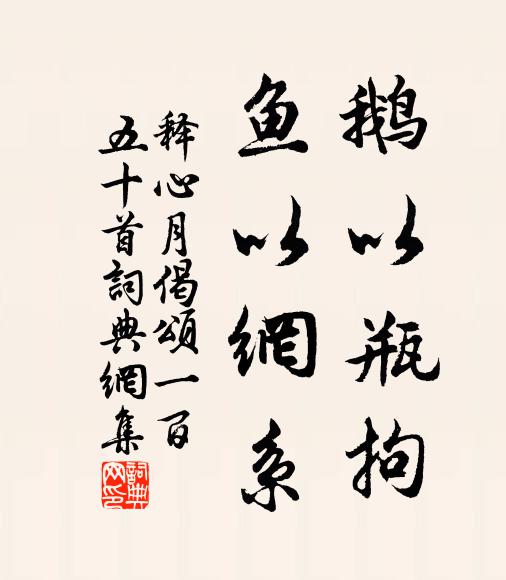 鹅以瓶拘
鱼以網系
释心月偈頌一百
五十首詞典網集
詞典
网印